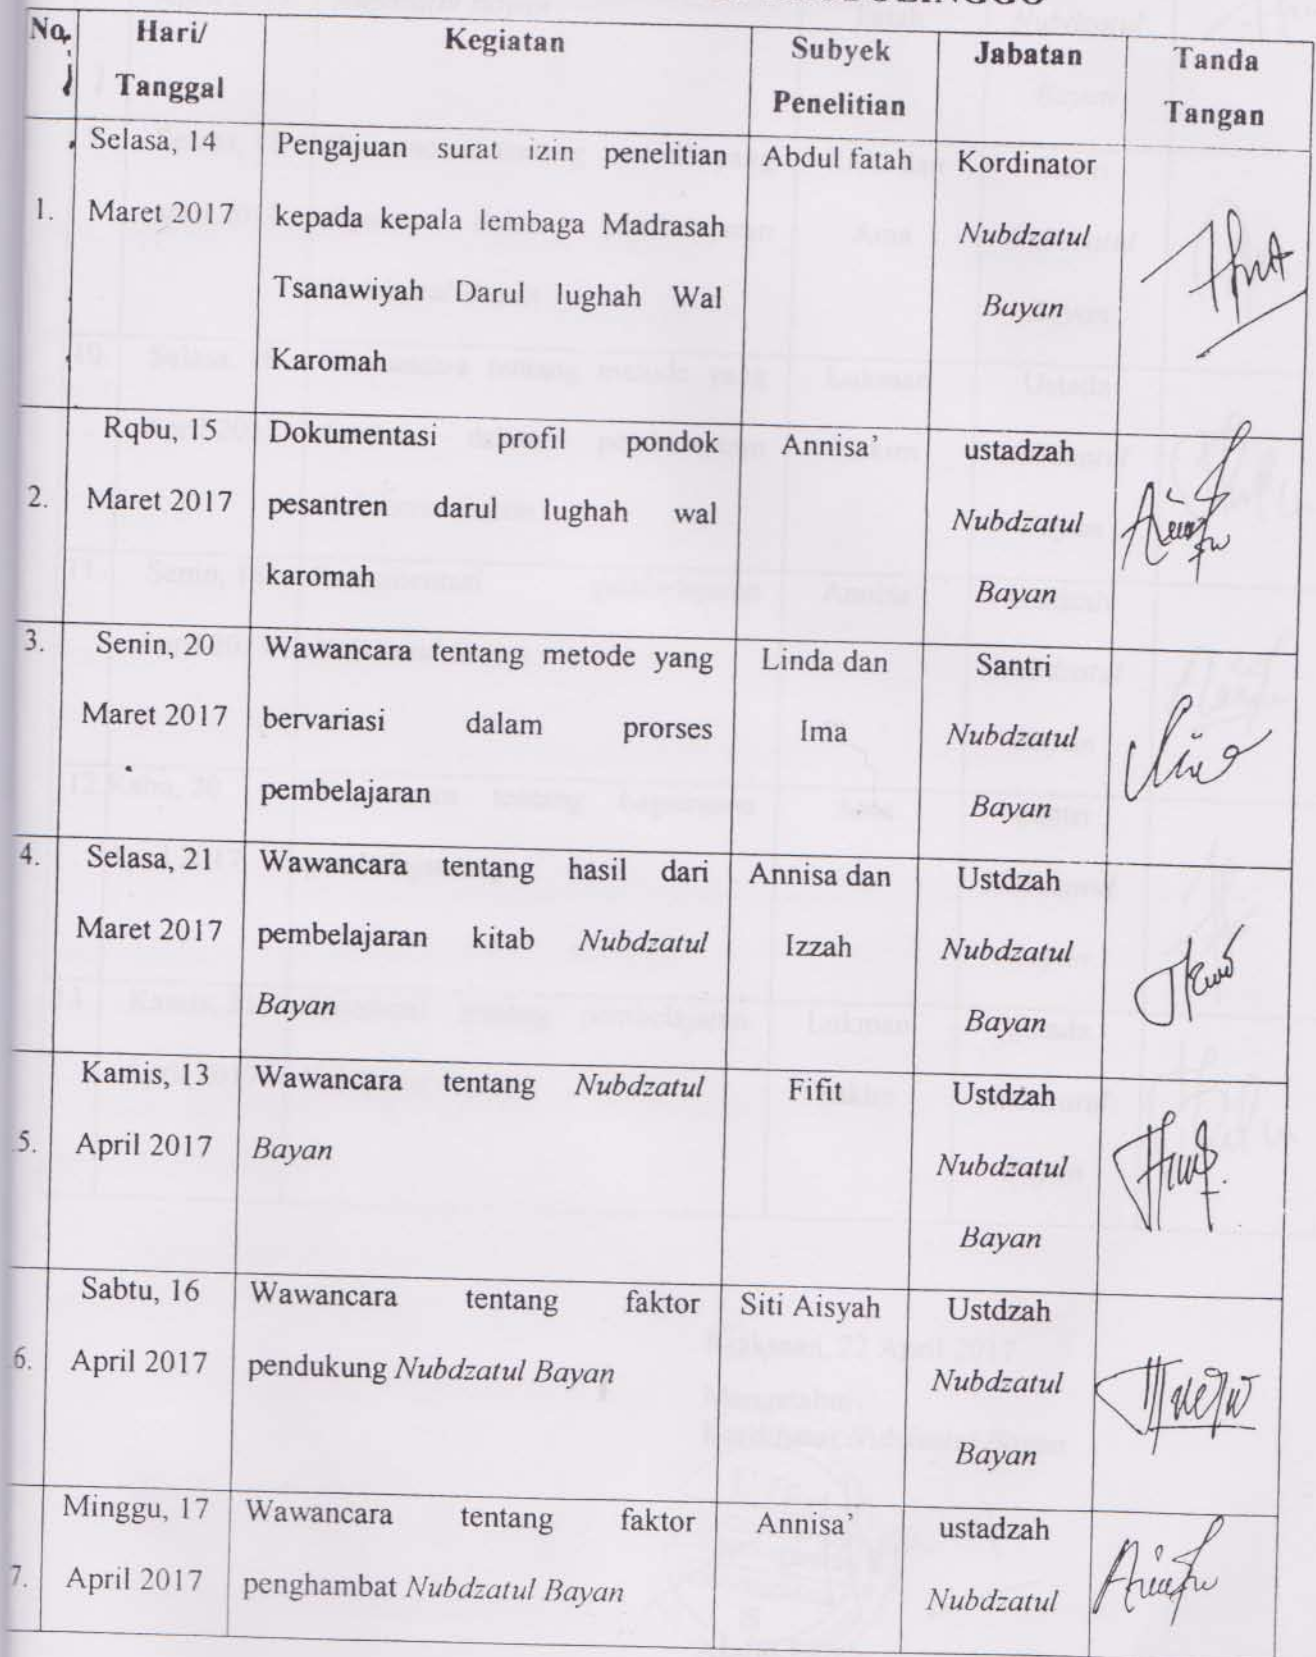 No. Hari/ Tanggal Kegiatan Subyek Penelitian Jabatan Tanda Tangan
1. Selasa, 14 Maret 2017 Pengajuan surat izin penelitian kepada kepala lembaga Madrasah Tsanawiyah Darul lughah Wal Karomah Abdul fatah Kordinator Nubdzatul Bayan
2. Rqbu, 15 Maret 2017 Dokumentasi profil pondok pesantren darul lughah wal karomah Annisa' ustadzah Nubdzatul Bayan
3. Senin, 20 Maret 2017 Wawancara tentang metode yang bervariasi dalam prorses pembelajaran Linda dan Ima Santri Nubdzatul Bayan
4. Selasa, 21 Maret 2017 Wawancara tentang hasil dari pembelajaran kitab Nubdzatul Bayan Annisa dan Izzah Ustdzah Nubdzatul Bayan
5. Kamis, 13 April 2017 Wawancara tentang Nubdzatul Bayan Fifit Ustdzah Nubdzatul Bayan
6. Sabtu, 16 April 2017 Wawancara tentang faktor pendukung Nubdzatul Bayan Siti Aisyah Ustdzah Nubdzatul Bayan
7. Minggu, 17 April 2017 Wawancara tentang faktor penghambat Nubdzatul Bayan Annisa' ustadzah Nubdzatul